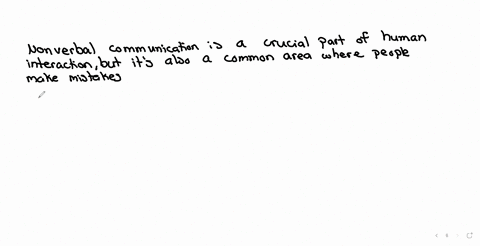 Nonverbal communication is a crucial part of human
interaction, but it's also a common area where people
make mistakes